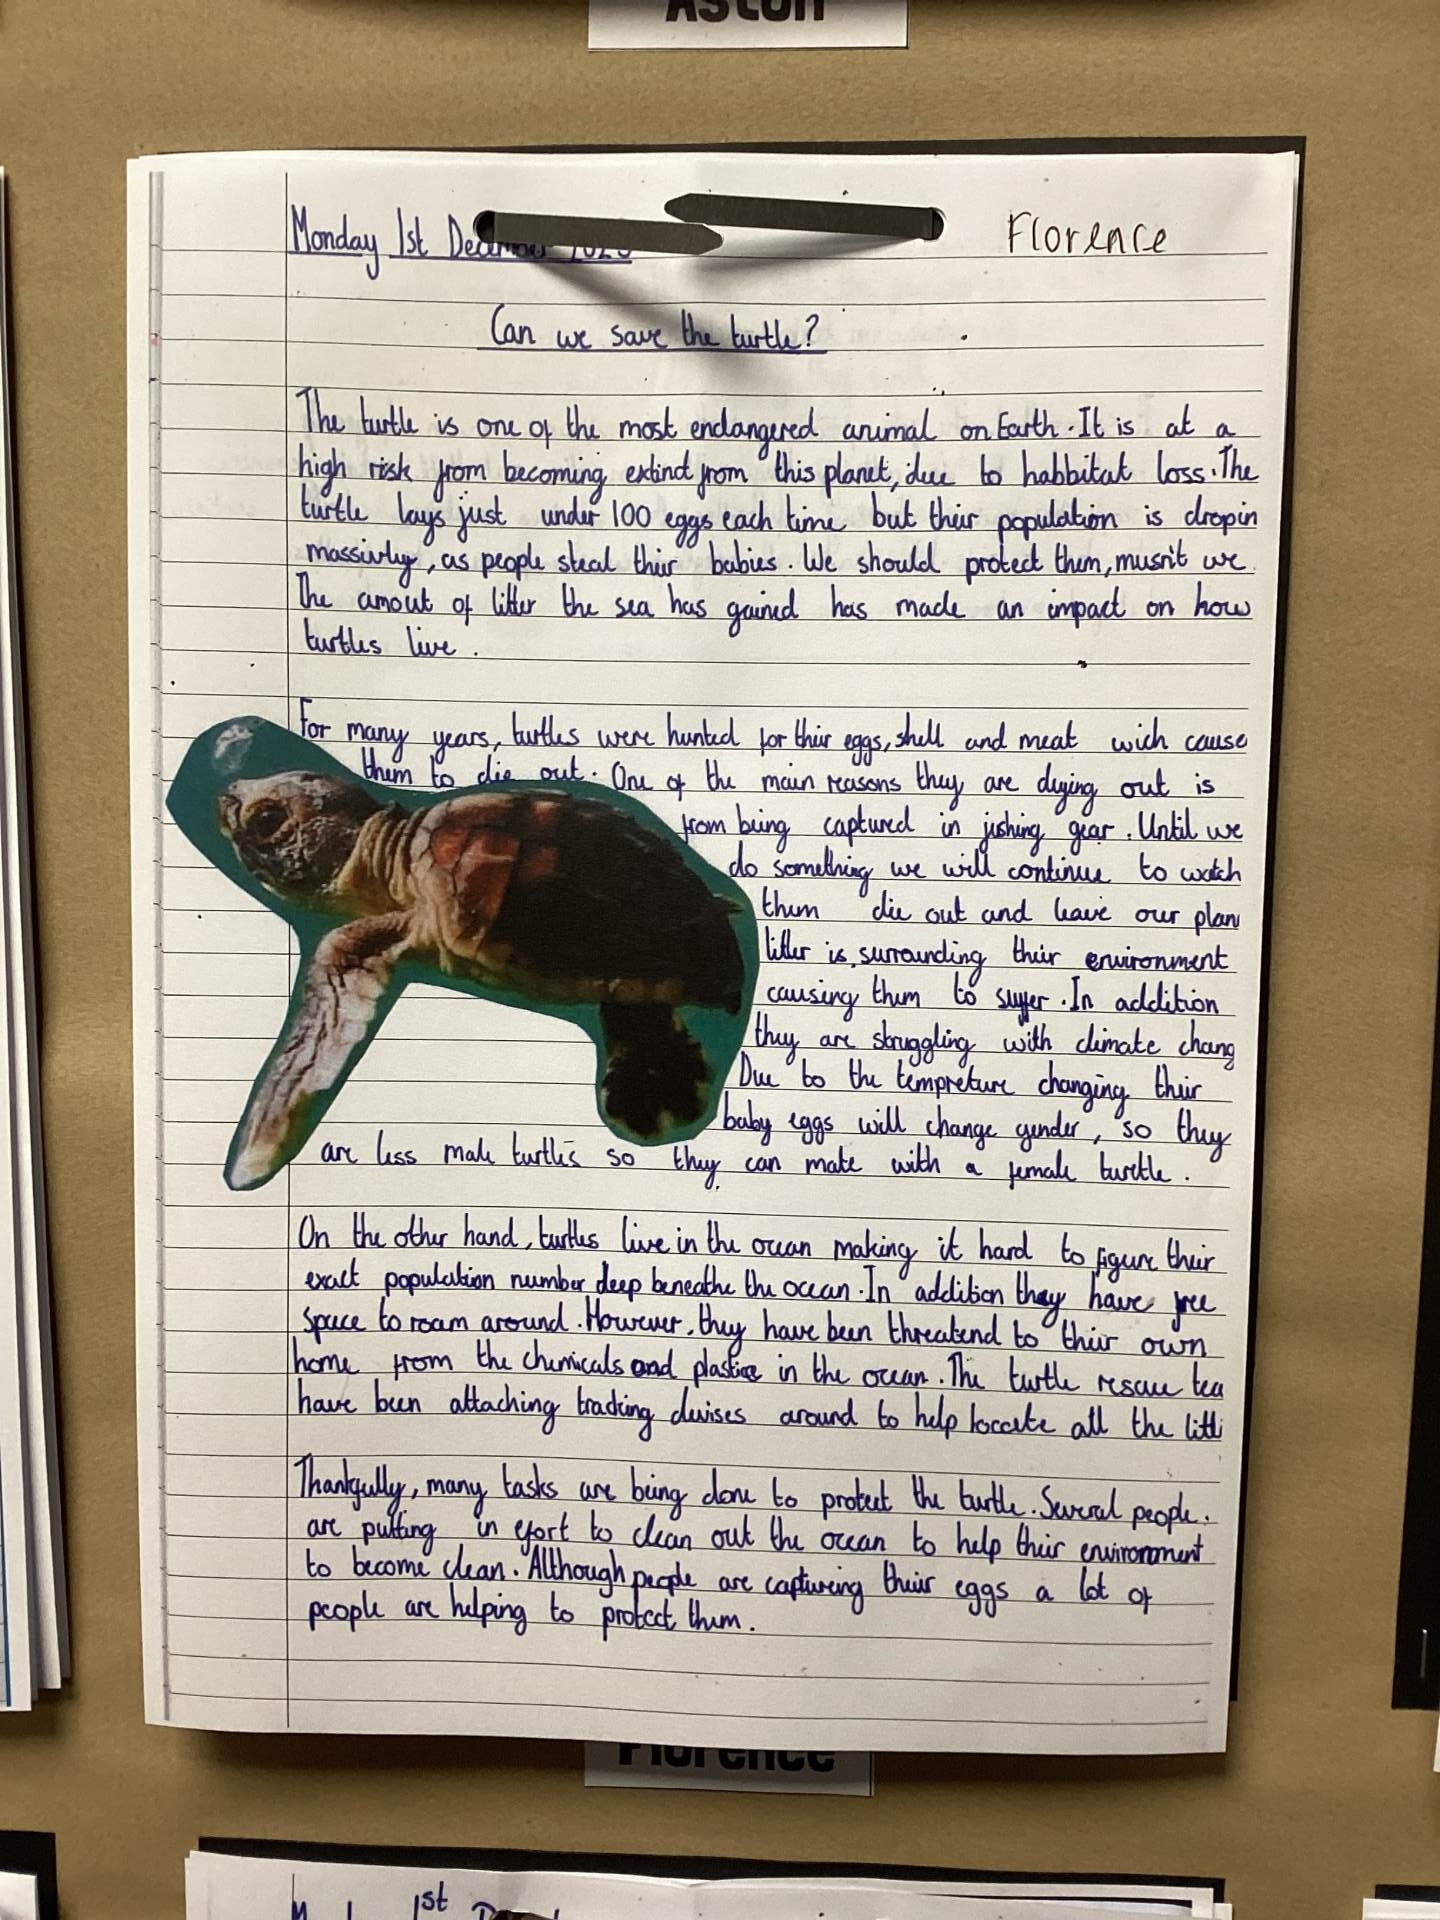 Aston
Monday 1st December
Florence
Can we save the turtle?
The turtle is one of the most endangered animal on Earth. It is at a
high risk from becoming extinct from this planet, due to habbitat loss. The
turtle lays just under 100 eggs each time but their population is dropin
massivley, as people steal their babies. We should protect them, musn't we
The amout of litter the sea has gained has made an impact on how
turtles live.
For many years, turtles were hunted for their eggs, shell and meat wich cause
them to die out. One of the main reasons they are dying out is
from being captured in fishing gear. Until we
do something we will continue to watch
them die out and leave our plan
litter is surrounding their environment
causing them to suffer. In addition
they are struggling with climate chang
Due to the tempreture changing their
baby eggs will change gender, so they
are less male turtles so they can mate with a female turtle.
On the other hand, turtles live in the ocean making it hard to figure their
exact population number deep beneathe the ocean. In addition they have free
space to roam around. However, they have been threatend to their own
home from the chemicals and plastics in the ocean. The turtle rescue tea
have been attaching tracking devises around to help loccate all the littl
Thankfully, many tasks are being done to protect the turtle. Several people.
are putting in efort to clean out the ocean to help their environment
to become clean. Although people are capturing their eggs a lot of
people are helping to protect them.
Florence
1st